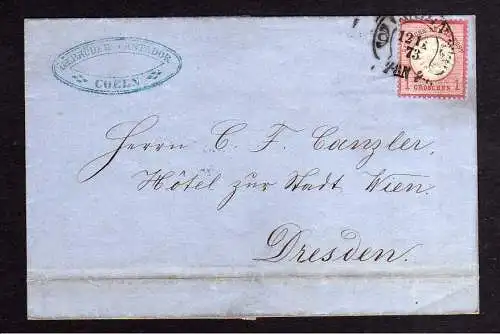 GEBRÜDER CANTADOR
COELN
12 12
73
1 GROSCHEN 1
Herrn C. F. Canzler,
Hôtel zur Stadt Wien.
Dresden.